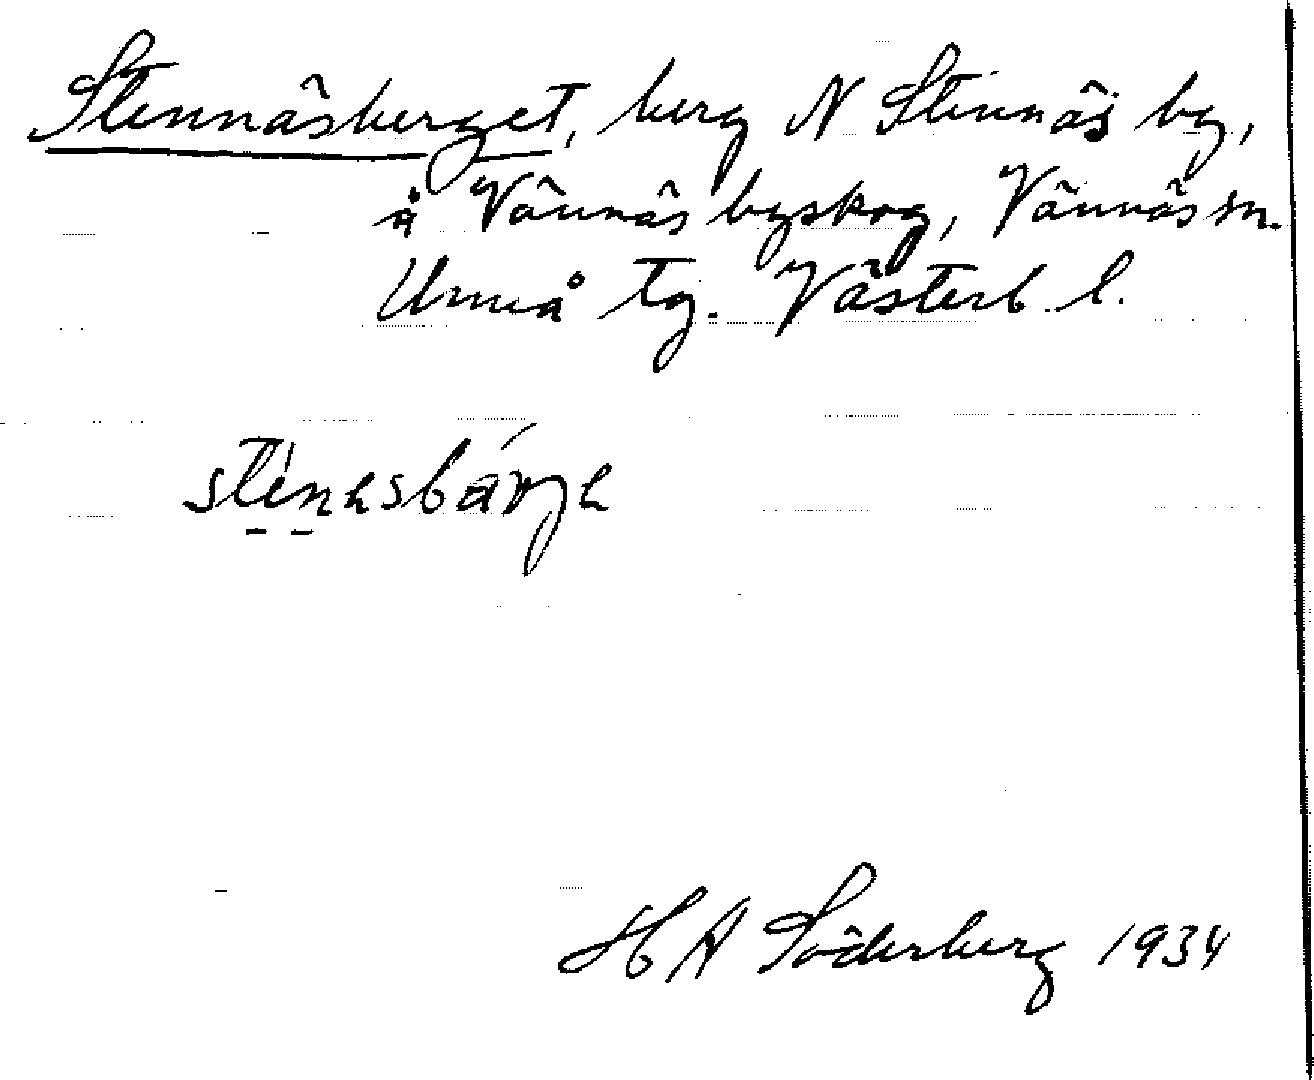 Stennäsberget, berg N Stennäs by,
å Vännäs byskog, Vännäs sn.
Umeå tg. Västerb l.
H A Söderberg 1934